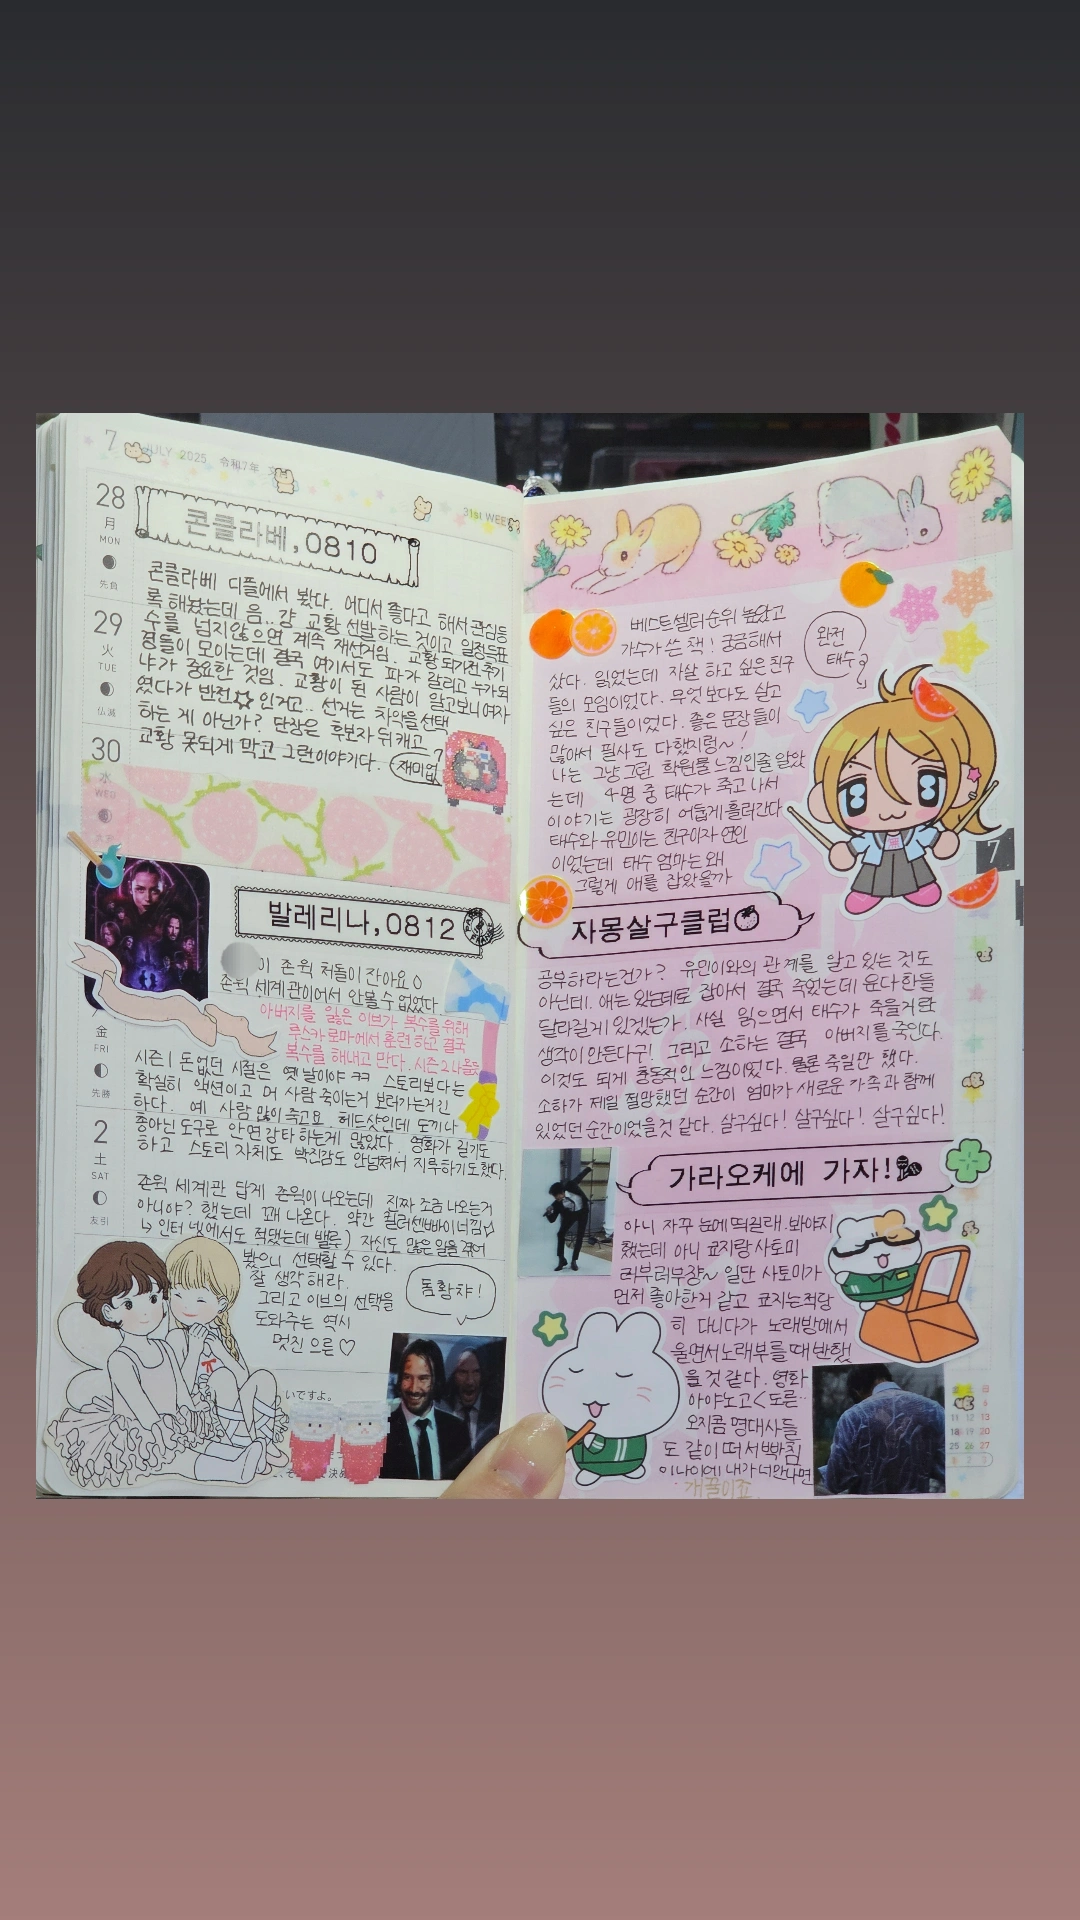 7 JULY 2025 令和7年
31st WEE
28
月
MON
先負
콘클라베,0810
콘클라베 디플에서 봤다. 어디서 좋다고 해서 관심등
록 해놨는데 음.. 걍 교황 선발하는 것이고 일정득표
수를 넘지않으면 계속 재선거임. 교황 되기전 추기
경들이 모이는데 결국 여기서도 파가 갈리고 누가 되
냐가 중요한 것임. 교황이 된 사람이 알고보니 여자
였다가 반전☆ 인거고.. 선거는 차악을 선택
하는 게 아닌가? 단장은 후보자 뒤캐고
교황 못되게 막고 그런이야기다. 재미없
29
火
TUE
仏滅
30
水
WED
발레리나,0812
이 존윅 처돌이 잔아요
존윅 세계관이어서 안볼 수 없었다.
아버지를 잃은 이브가 복수를 위해
루스카 로마에서 훈련하고 결국
복수를 해내고 만다. 시즌2 나올듯
金
FRI
先勝
시즌1 돈없던 시절은 옛날이야 ㅋㅋ 스토리보다는
확실히 액션이고 머 사람 죽이는거 보러가는거긴
하다. 예 사람 많이 죽고요. 헤드샷인데 도끼나
총아닌 도구로 안면강타 하는게 많았다. 영화가 길기도
하고 스토리 자체도 박진감도 안넘쳐서 지루하기도 했다.
2
土
SAT
友引
존윅 세계관 답게 존윅이 나오는데 진짜 조금 나오는거
아니야? 했는데 꽤 나온다. 약간 킬러센빠이 너낌
↳ 인터넷에서도 적됐는데 밸류) 자신도 많은 일을 겪어
봤으니 선택할 수 있다.
잘 생각해라.
그리고 이브의 선택을
도와주는 역시
멋진 으른♡
돔황챠!
いですよ。
베스트셀러 순위 높았고
가수가 쓴 책! 궁금해서
샀다. 읽었는데 자살 하고 싶은 친구
들의 모임이었다. 무엇보다도 살고
싶은 친구들이었다. 좋은 문장들이
많아서 필사도 다했지렁~!
나는 그냥 그런 학원물 느낌인줄 알았
는데 4명 중 태수가 죽고 나서
이야기는 굉장히 어둡게 흘러간다
태수와 유민이는 친구이자 연인
이었는데 태수 엄마는 왜
그렇게 애를 잡았을까
완전
태수
7
자몽살구클럽
공부하라는건가? 유민이와의 관계를 알고 있는 것도
아닌데. 애는 있는대로 잡아서 결국 죽었는데 운다한들
달라질게 있겠는가. 사실 읽으면서 태수가 죽을거란
생각이 안든다구! 그리고 소하는 결국 아버지를 죽인다.
이것도 되게 충동적인 느낌이었다. 물론 죽일만 했다.
소하가 제일 절망했던 순간이 엄마가 새로운 가족과 함께
있었던 순간이었을것 같다. 살구싶다! 살구싶다! 살구싶다!
가라오케에 가자!
아니 자꾸 눈에 띄길래 봐야지
했는데 아니 쿄지랑 사토미
러부러부쟝~ 일단 사토미가
먼저 좋아한거 같고 쿄지는 적당
히 다니다가 노래방에서
울면서 노래부를 때 반했
을것 같다. 영화
아야노고<도른..
오지콤 명대사들
도 같이 떠서 빡침
이나이에 내가 너 만나면
개꿀이죠
6
11 12 13
18 19 20
25 26 27